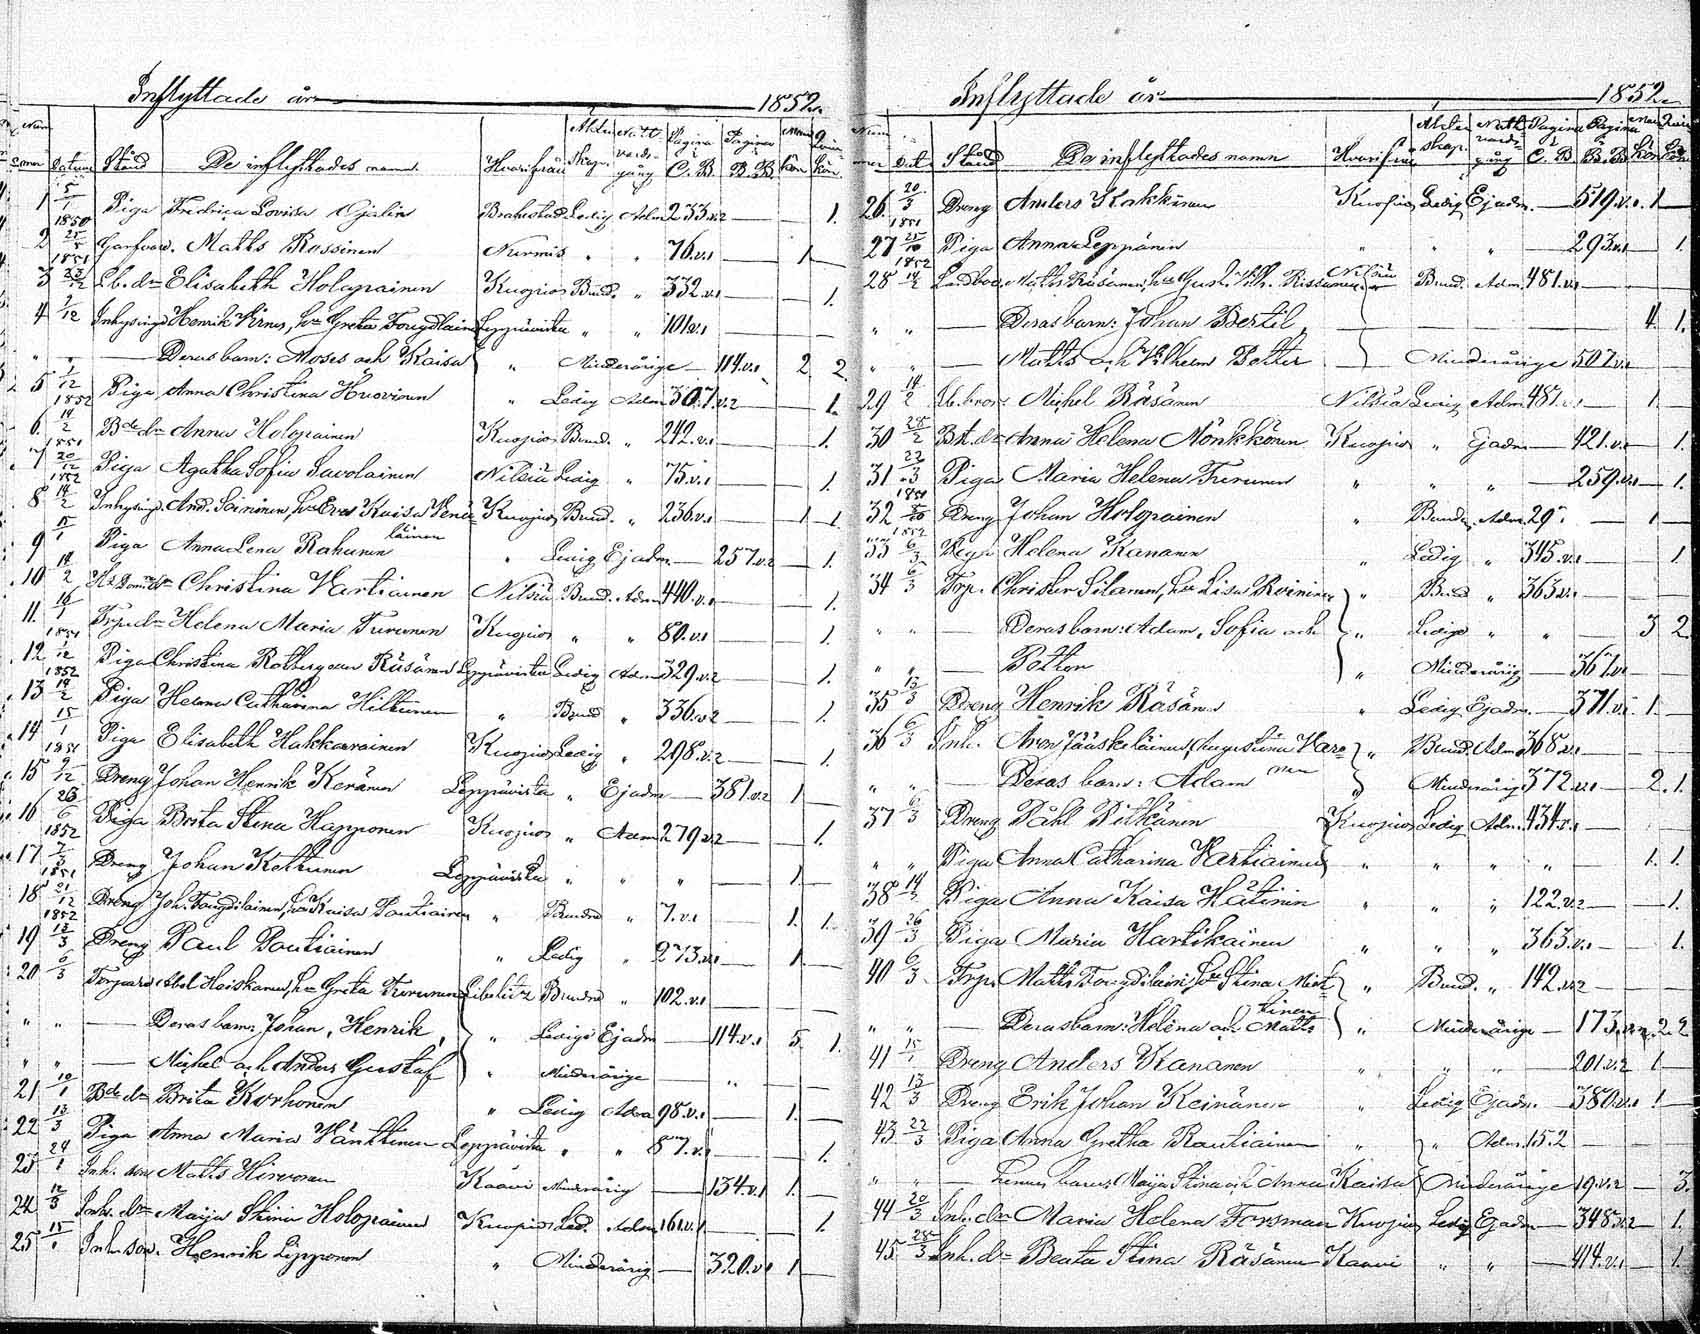 Inflyttade år 1852.
Datum Stånd De inflyttades namn. Hvarifrån Ägtenskap. Nattvardsgång Pagina i C.B. Pagina i B.B. Mankön Qvinkön.
1 5/1 Piga Fredrica Lovisa Ojalin Brahestad Ledig Adm 233.v.2 — 1.
1850
2 25/5 Matts Rossinen Nurmis " " 76.v.1 — 1 —
1851
3 23/12 Lb. dr Elisabeth Holopainen Kuopio Bund. " 332.v.1 — 1.
4 7/12 Inhysing Henrik Kirnes, hu Greta Fougdlainen Leppävirta " " 101.v.1 —
" " — Deras barn: Moses och Kaisa " Minderårige — 114.v.1 2. 2.
5 1/12 Piga Anna Christina Huovinen " Ledig Adm 307.v.2 — 1.
1852
6. 14/2 Bde dr Anna Holopainen Kuopio Bund. " 242.v.1 — 1.
1851
7 20/12 Piga Agatha Sofia Savolainen Nilsiä Ledig " 75.v.1 — 1.
1852
8 14/2 Inhysing. And. Soininen, hu Eva Kaisa Venäläinen Kuopio Bund. " 236.v.1 — 1 1.
9 15/1 Piga Anna Lena Rahunen " Ledig Ej adm. — 257.v.2 — 1.
10 18/2 Christina Vartiainen Nilsiä Bund. Adm 440.v.1 — 1.
11. 16/1 Trp. dr Helena Maria Turunen Kuopio " " 80.v.1 — 1.
1851
12 1/12 Piga Christina Räsänen Leppävirta Ledig Adm 329.v.2 — 1.
1852
13 19/2 Piga Helena Catharina Hiltunen " Bund " 336.v.2 — 1.
14 15/1 Piga Elisabeth Hakkarainen Kuopio Ledig " 298.v.2 — 1.
1851
15 9/12 Dreng Johan Henrik Keränen Leppävirta " Ej adm — 381.v.2 1 —
16 26/6 Piga Brita Stina Happonen Kuopio " Adm 279.v.2 — 1.
1852
17 7/3 Dreng Johan Kettunen Leppävirta " " " — 1 —
1851
18 21/12 Dreng Joh. Fougdilainen, hu Kaisa Pautiainen " Bundne " 7.v.1 — 1. 1.
1852
19 13/3 Dreng Paul Poutiainen " Ledig " 273.v.1 — 1 —
20 6/3 Torpare Abel Hoiskanen, hu Greta Turunen Libelitz Bundne " 102.v.1 —
" " — Deras barn: Johan, Henrik, " Ledige Ej adm — 114.v.1 5. 1.
" " — Michel och Anders Gustaf " Minderårige — "
21 10/1 Bde dr Brita Korhonen " Ledig Adm 98.v.1 — 1. —
22 13/3 Piga Anna Maria Vänttinen Leppävirta " " 87.v.1 — 1.
23 24/1 Inh. son Matts Hirvonen Kaavi Minderårig — 134.v.1 1. —
24 12/3 Inh. dr Maija Stina Holopainen Kuopio Led. Adm 161.v.1 — 1.
25 15/1 Inh. son. Henrik Lipponen " Minderårig — 320.v.1 1 —
Inflyttade år 1852.
Dat. Stånd De inflyttades namn Hvarifrån Ägtenskap. Nattvardsgång Pagina i C.B. Pagina i B.B. Mankön Qvinkön
26. 20/3 Dreng Anders Kokkinen Kuopio Ledig Ej adm. — 519.v.1. 1 —
1851
27 25/10 Piga Anna Leppänen " " " — 293.v.1 1.
1852
28 14/2 Landboe, Matts Räsänen, hu Gust. Vilh. Rissanen Nilsiä Bund. Adm 481.v.1 —
" " — Deras barn: Johan Bertil, — 4. 1.
" " — Matts och Vilhelm Petter Minderårige 507.v.1 —
29 14/2 Michel Räsänen Nilsiä Ledig Adm 481.v.1 — 1. —
30 28/2 Bk. dr Anna Helena Mönkkönen Kuopio " Ej adm — 421.v.1 — 1.
31 22/3 Piga Maria Helena Turunen " " " — 259.v.1 — 1.
1851
32 Dreng Johan Holopainen " Bunden Adm. 29. — 1 —
1852
33 6/3 Piga Helena Kananen " Ledig " 345.v.1 1.
34 6/3 Trp. Christer Silanen, hu Lisa Roininen " Bund " 363.v.1
" " — Deras barn: Adam, Sofia och " Ledige " " — 3 2.
" " — Petter " Minderårig — 367.v.1
35 13/3 Dreng Henrik Räsänen " Ledig Ej adm. — 371.v.1 1 —
36 6/3 Inh. Aron Jääskeläinen, Augustina Varonen " Bund. Adm 368.v.1 —
" " — Deras barn: Adam " Minderårig 372.v.1 — 2. 1.
37 6/3 Dreng Påhl Pitkänen Kuopio Ledig Adm. 434.v.1 —
" " Piga Anna Catharina Vartiainen " " " " — 1. 1.
38 14/3 Piga Anna Kaisa Hätinen " " " 122.v.2 — 1.
39 26/3 Piga Maria Hartikainen " " " 363.v.1 — 1.
40 6/3 Trp. Matts Fougdilain, hu Stina Miettinen " Bund. " 142.v.2 —
" " — Deras barn: Helena och Matts " Minderårige — 173.v.2 2. 2
41 15/1 Dreng Anders Kananen " " " 201.v.2 1 —
42 13/3 Dreng Erik Johan Keinänen " Ledig Ej adm. — 380.v.1 1 —
43 22/3 Piga Anna Gretha Rautiainen " " Adm. 152
" " — hennes barn: Maija Stina och Anna Kaisa Minderårige 19.v.2 — 3.
44 20/3 Inh. dr Maria Helena Forsman Kuopio Ledig Ej adm — 348.v.2 — 1.
45 28/3 Inh. dr Beata Stina Räsänen Kaavi " " — 414.v.1 — 1.